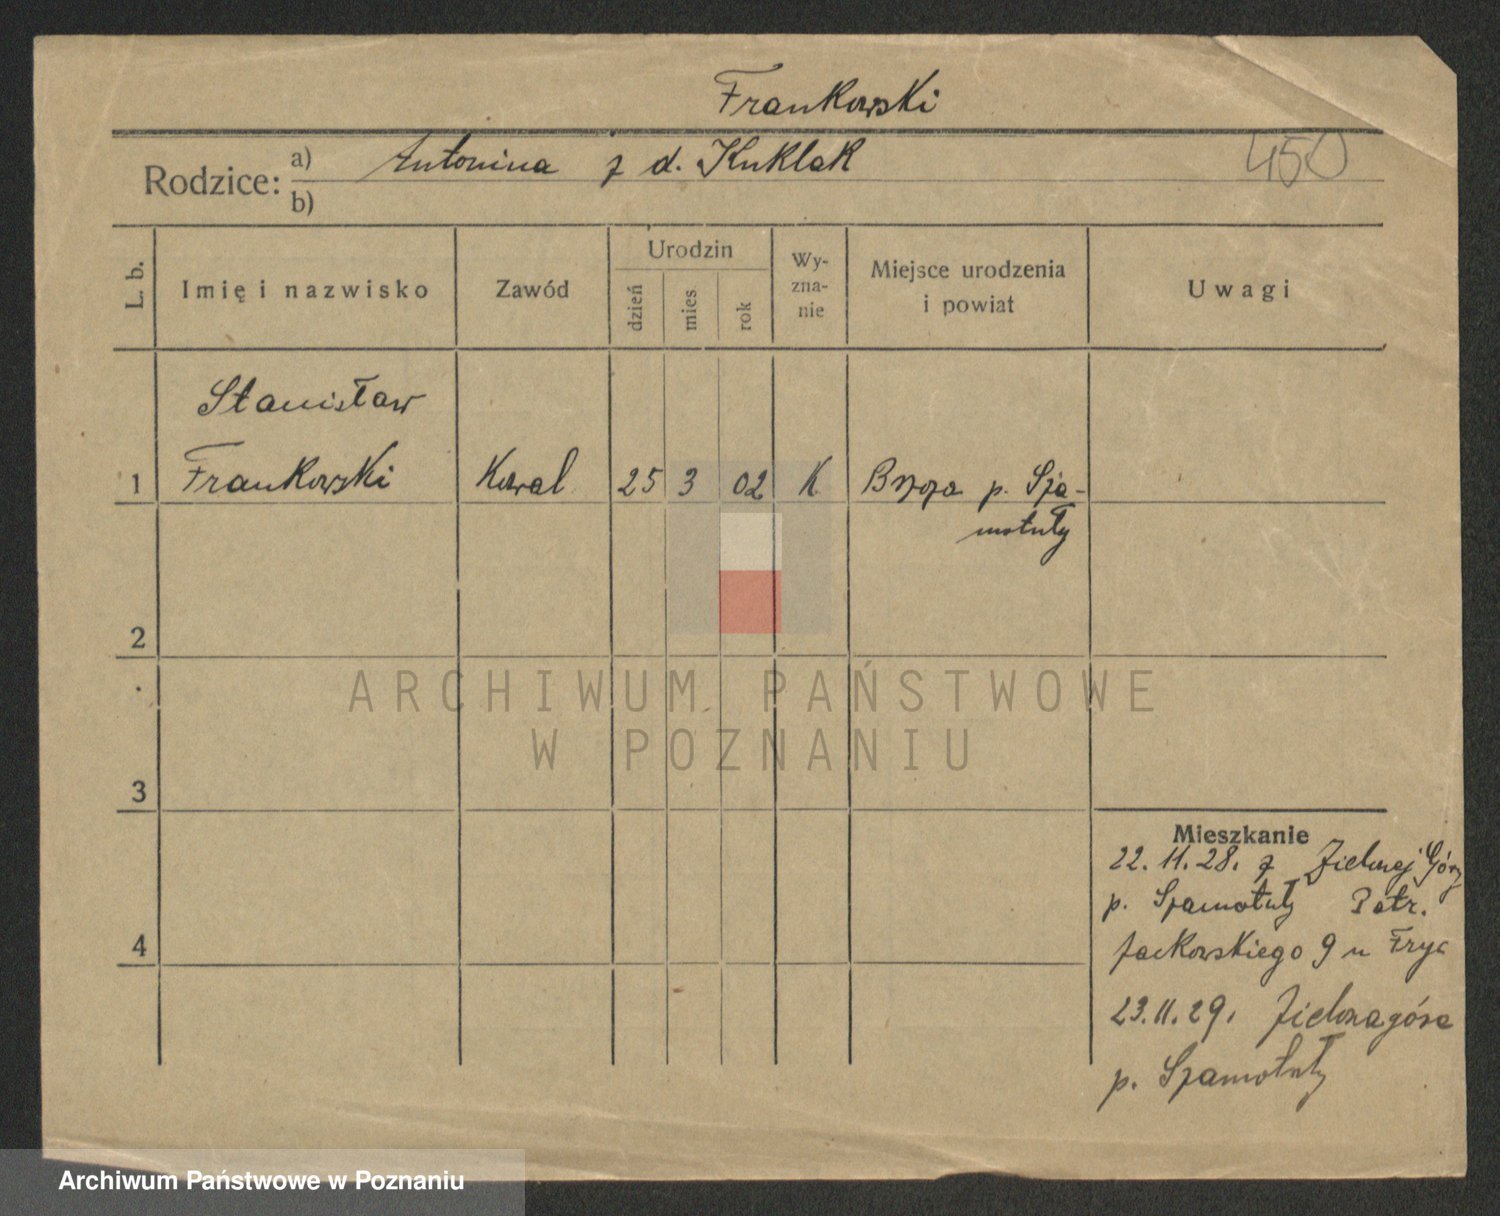 Frankowski
Rodzice: a) Antonina z d. Kuklak
450
b)
L. b. Imię i nazwisko Zawód Urodzin dzień mies rok Wyznanie Miejsce urodzenia i powiat Uwagi
Stanisław
1 Frankowski Kowal 25 3 02 K Brzoza p. Sza-
motuły
2
3
4
Mieszkanie
22.11.28. z Zielonej Góry
p. Szamotuły Patr.
Jackowskiego 9 u Fryc
23.11.29. Zielonagóra
p. Szamotuły
ARCHIWUM PAŃSTWOWE
W POZNANIU
Archiwum Państwowe w Poznaniu